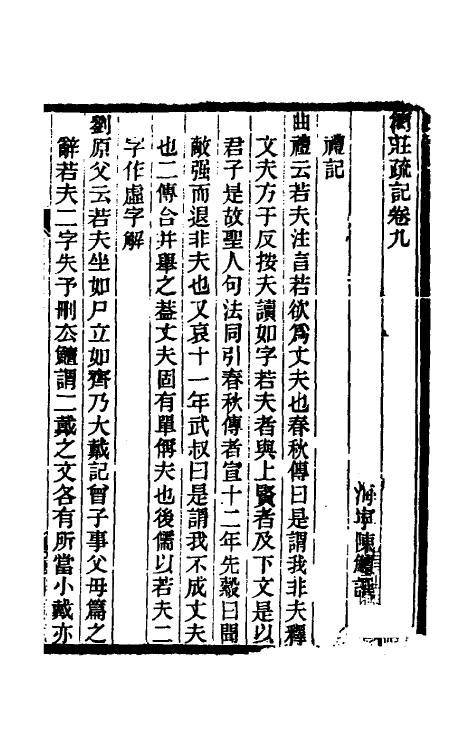 簡莊疏記卷九
海寧陳鱣譔
禮記
曲禮云若夫注言若欲為丈夫也春秋傳曰是謂我非夫釋
文夫方于反按夫讀如字若夫者與上賢者及下文是以
君子是故聖人句法同引春秋傳者宣十二年先縠曰聞
敵强而退非夫也又哀十一年武叔曰是謂我不成丈夫
也二傳合并舉之葢丈夫固有單偁夫也後儒以若夫二
字作虛字解
劉原父云若夫坐如尸立如齊乃大戴記曾子事父母篇之
辭若夫二字失予刪去鱣謂二戴之文各有所當小戴亦